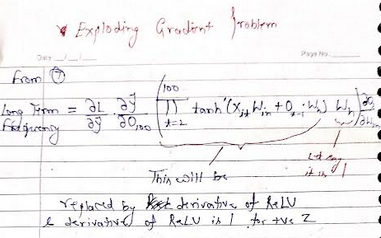 * Exploding Gradient Problem
Date __/__/__ Page No.
From ⑦
Long Term = ∂L/∂ŷ ∂ŷ/∂O₁₀₀ (100 ∏ t=2 tanh'(xᵢₜ Wᵢₙ + Oₜ₋₁ · Wₕ) Wₕ) ∂O₁/∂Wᵢₙ
This will be
it is 1
replaced by derivative of ReLU
& derivative of ReLU is 1 for +ve Z